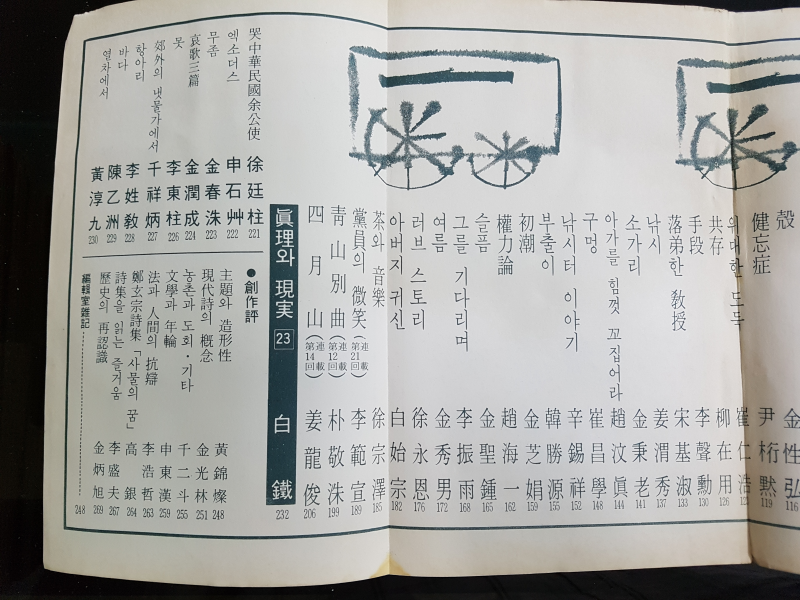 殼 金性弘 116
健忘症 尹桁默 119
위대한 도둑 崔仁浩
共存 柳在用 126
手段 李聲勳 130
落弟한 敎授 宋基淑 133
낚시 姜渭秀 137
소가리 金秉老 141
아가를 힘껏 꼬집어라 趙汶眞 144
구멍 崔昌學 148
낚시터 이야기 辛錫祥 152
부출이 韓勝源 155
初潮 金芝娟 159
權力論 趙海一 162
슬픔 金聖鍾 165
그를 기다리며 李振雨 168
여름 金秀男 172
러브 스토리 徐永恩 176
아버지 귀신 白始宗 182
茶와 音樂 徐宗澤 185
黨員의 微笑 (連載 第21回) 李範宣 189
靑山別曲 (連載 第12回) 朴敬洙 199
四月山 (連載 第14回) 姜龍俊 206
眞理와 現実 23 白鐵 232
哭中華民國余公使 徐廷柱 221
엑소더스 申石艸 222
무좀 金春洙 223
哀歌三篇 金潤成 224
못 李東柱 226
郊外의 냇물가에서 千祥炳 227
항아리 李姓敎 228
바다 陳乙洲 229
열차에서 黃淳九 230
●創作評
主題와 造形性 黃錦燦 248
現代詩의 槪念 金光林 251
농촌과 도회·기타 千二斗 255
文學과 年輪 申東漢 259
法과 人間의 抗辯 李浩哲 263
鄭玄宗詩集「사물의 꿈」 高銀 264
詩集을 읽는 즐거움 李盛夫 267
歷史의 再認識 金炳旭 269
編輯室雜記 248